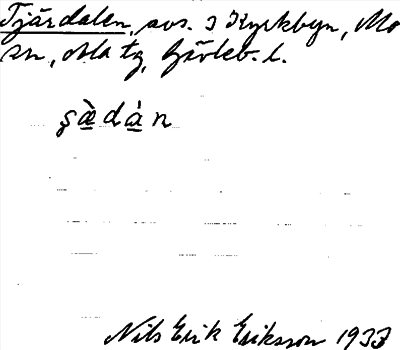 Tjärdalen, avs. i Kyrkbyn, Mo
sn, Ala tg, Gävleb. l.
șæ̀dàn
Nils Erik Eriksson 1937